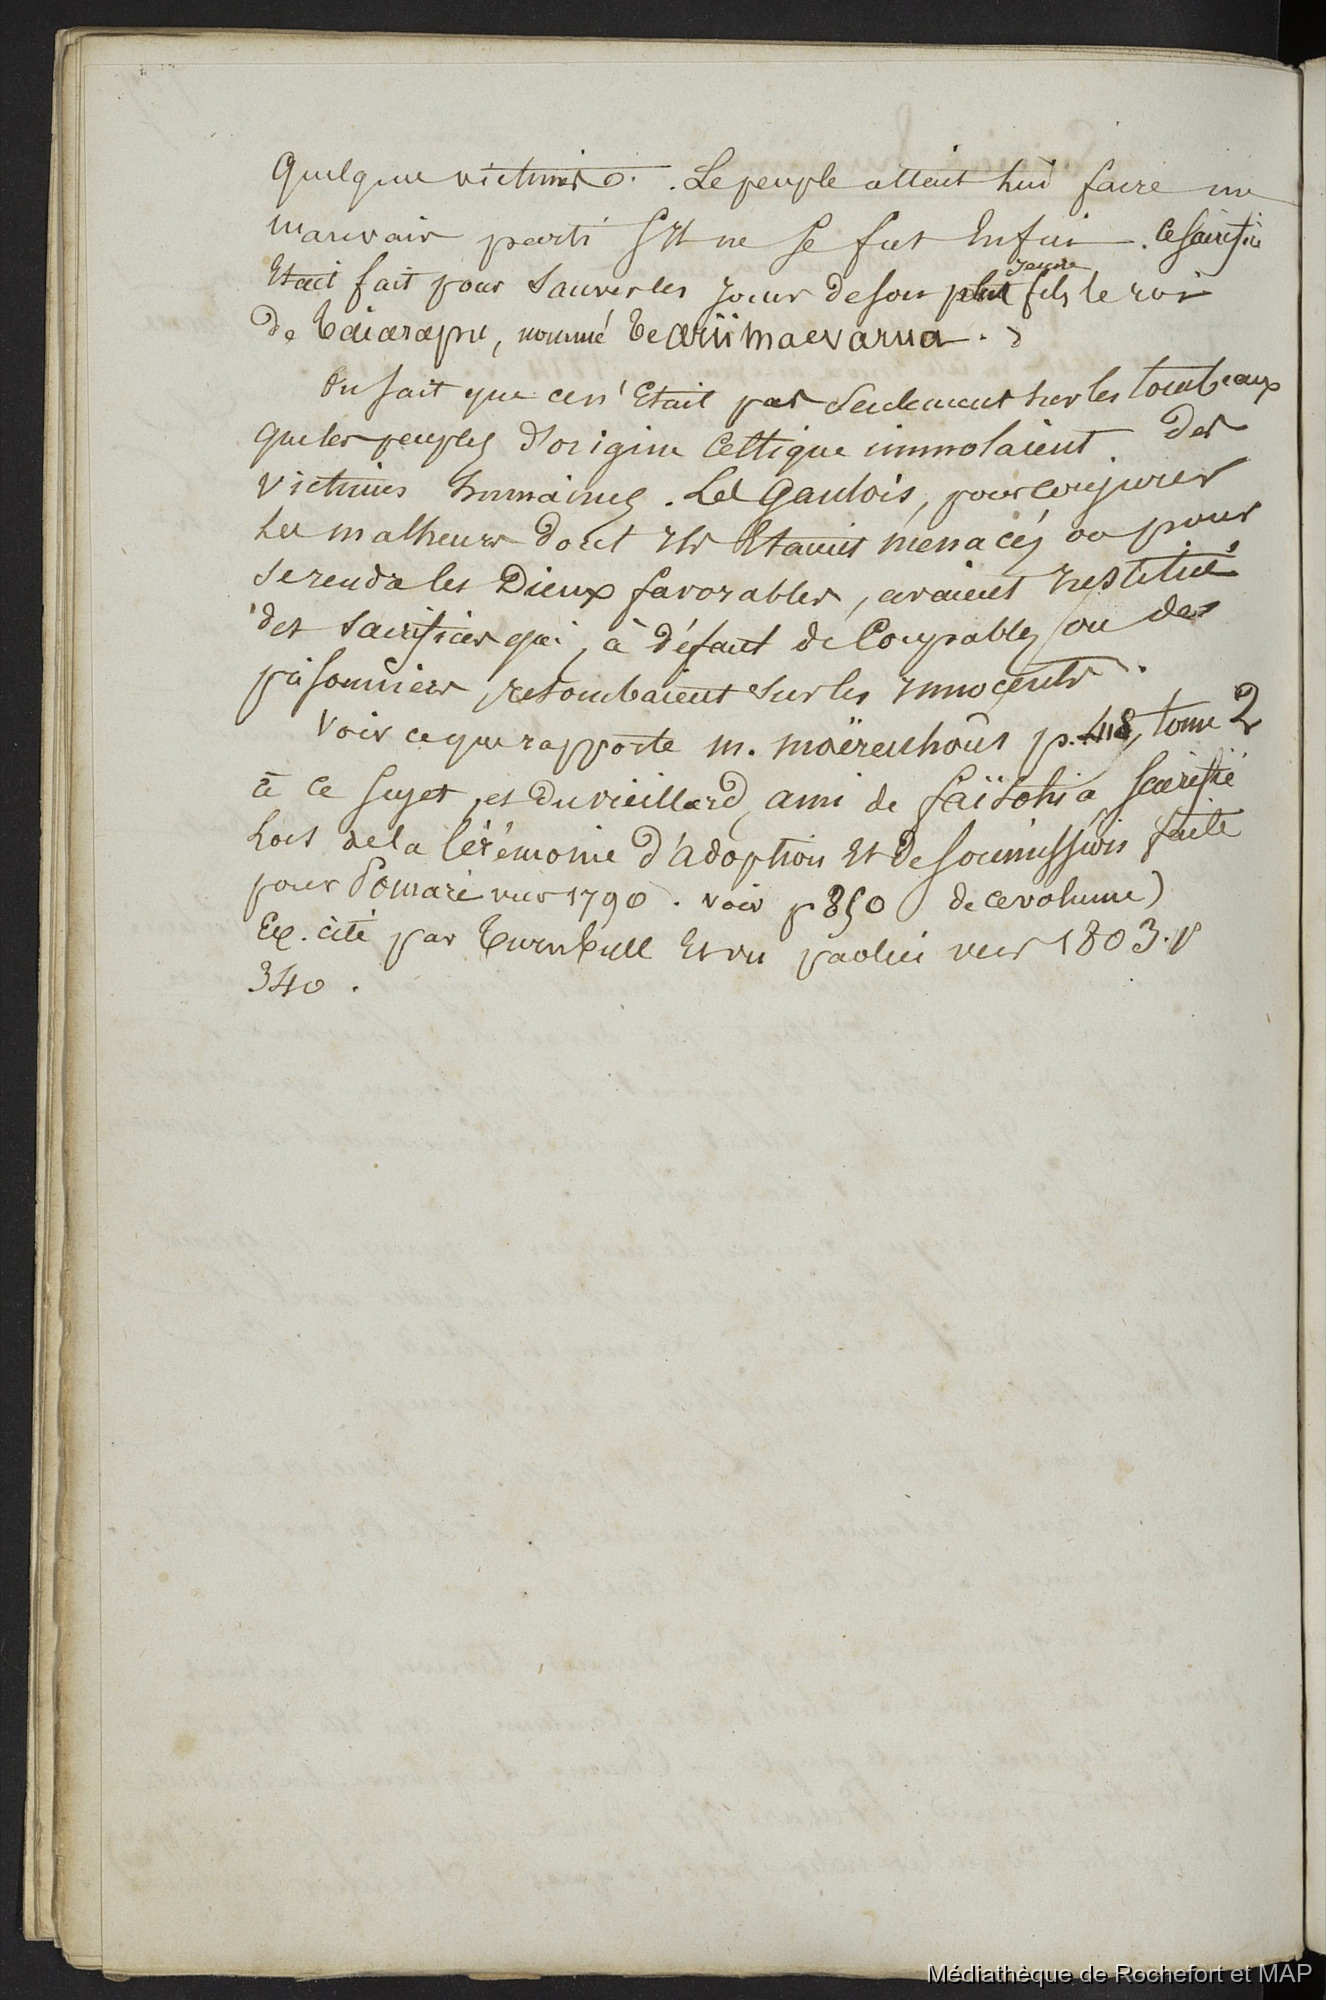 quelque victimes. Le peuple allait lui faire un
mauvais parti s'Il ne se fut Enfui. Ce sacrifice
Etait fait pour sauver les jours de son plus jeune fils le roi
de Taiarapu, nommé Te arii maevarua.)
On sait que ce n'Etait pas seulement sur les tombeaux
que les peuples d'origine Celtique immolaient des
victimes humaines. Les Gaulois, pour conjurer
les malheurs dont Ils Etaient menacés ou pour
se rendre les Dieux favorables, avaient Institué
des sacrifices qui, à défaut de Coupables ou des
prisonniers, retombaient sur les Innocents.
Voir ce que rapporte m. moërenhoüt p. 418, tome 2
à ce sujet, et du vieillard, ami de Païtohia sacrifié
lors de la Cérémonie d'adoption Et De soumission faite
pour Pomaré vers 1790. voir p 850 de ce volume)
Ex. cité par Turnbull Et vu vers 1803. p
340.
Médiathèque de Rochefort et MAP